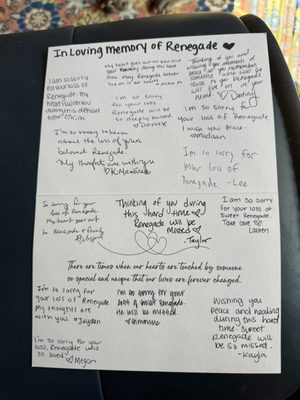 In Loving memory of Renegade
My heart goes out to you and
your family during this hard
time. May Renegade forever
live on in our hearts
Thinking of you and
wishing you moments of
peace as you remember
someone who was so
close to you. Renegade
will live on in your
heart Destiny
I am so sorry
for your loss of
Renegade. My
heart is with you
during this difficult
time
I'm so sorry
for your loss.
Renegade will be
so deeply missed
I'm so sorry for
your loss of Renegade.
I wish you peace
I'm so sorry to hear
about the loss of your
beloved Renegade.
My thoughts are with you
Im so sorry for
your loss of
Renegade, -Lee
So sorry for your
loss of Renegade.
My heart goes out
to Renegade & family
Thinking of you during
this hard time
Renegade will be
missed
-Taylor
I am so sorry
for your loss of
sweet Renegade.
Take care
Lauren
There are times when our hearts are touched by someone
so special and unique that our lives are forever changed.
I'm so sorry for
your loss of Renegade
My thoughts are
with you. Jayden
I'm so sorry for your
loss of sweet Renegade.
He will be missed.
Wishing you
peace and healing
during this hard
time. Sweet
Renegade will
be so missed.
-Kayla
I'm so sorry for your
loss. Renegade was
so loved Megan